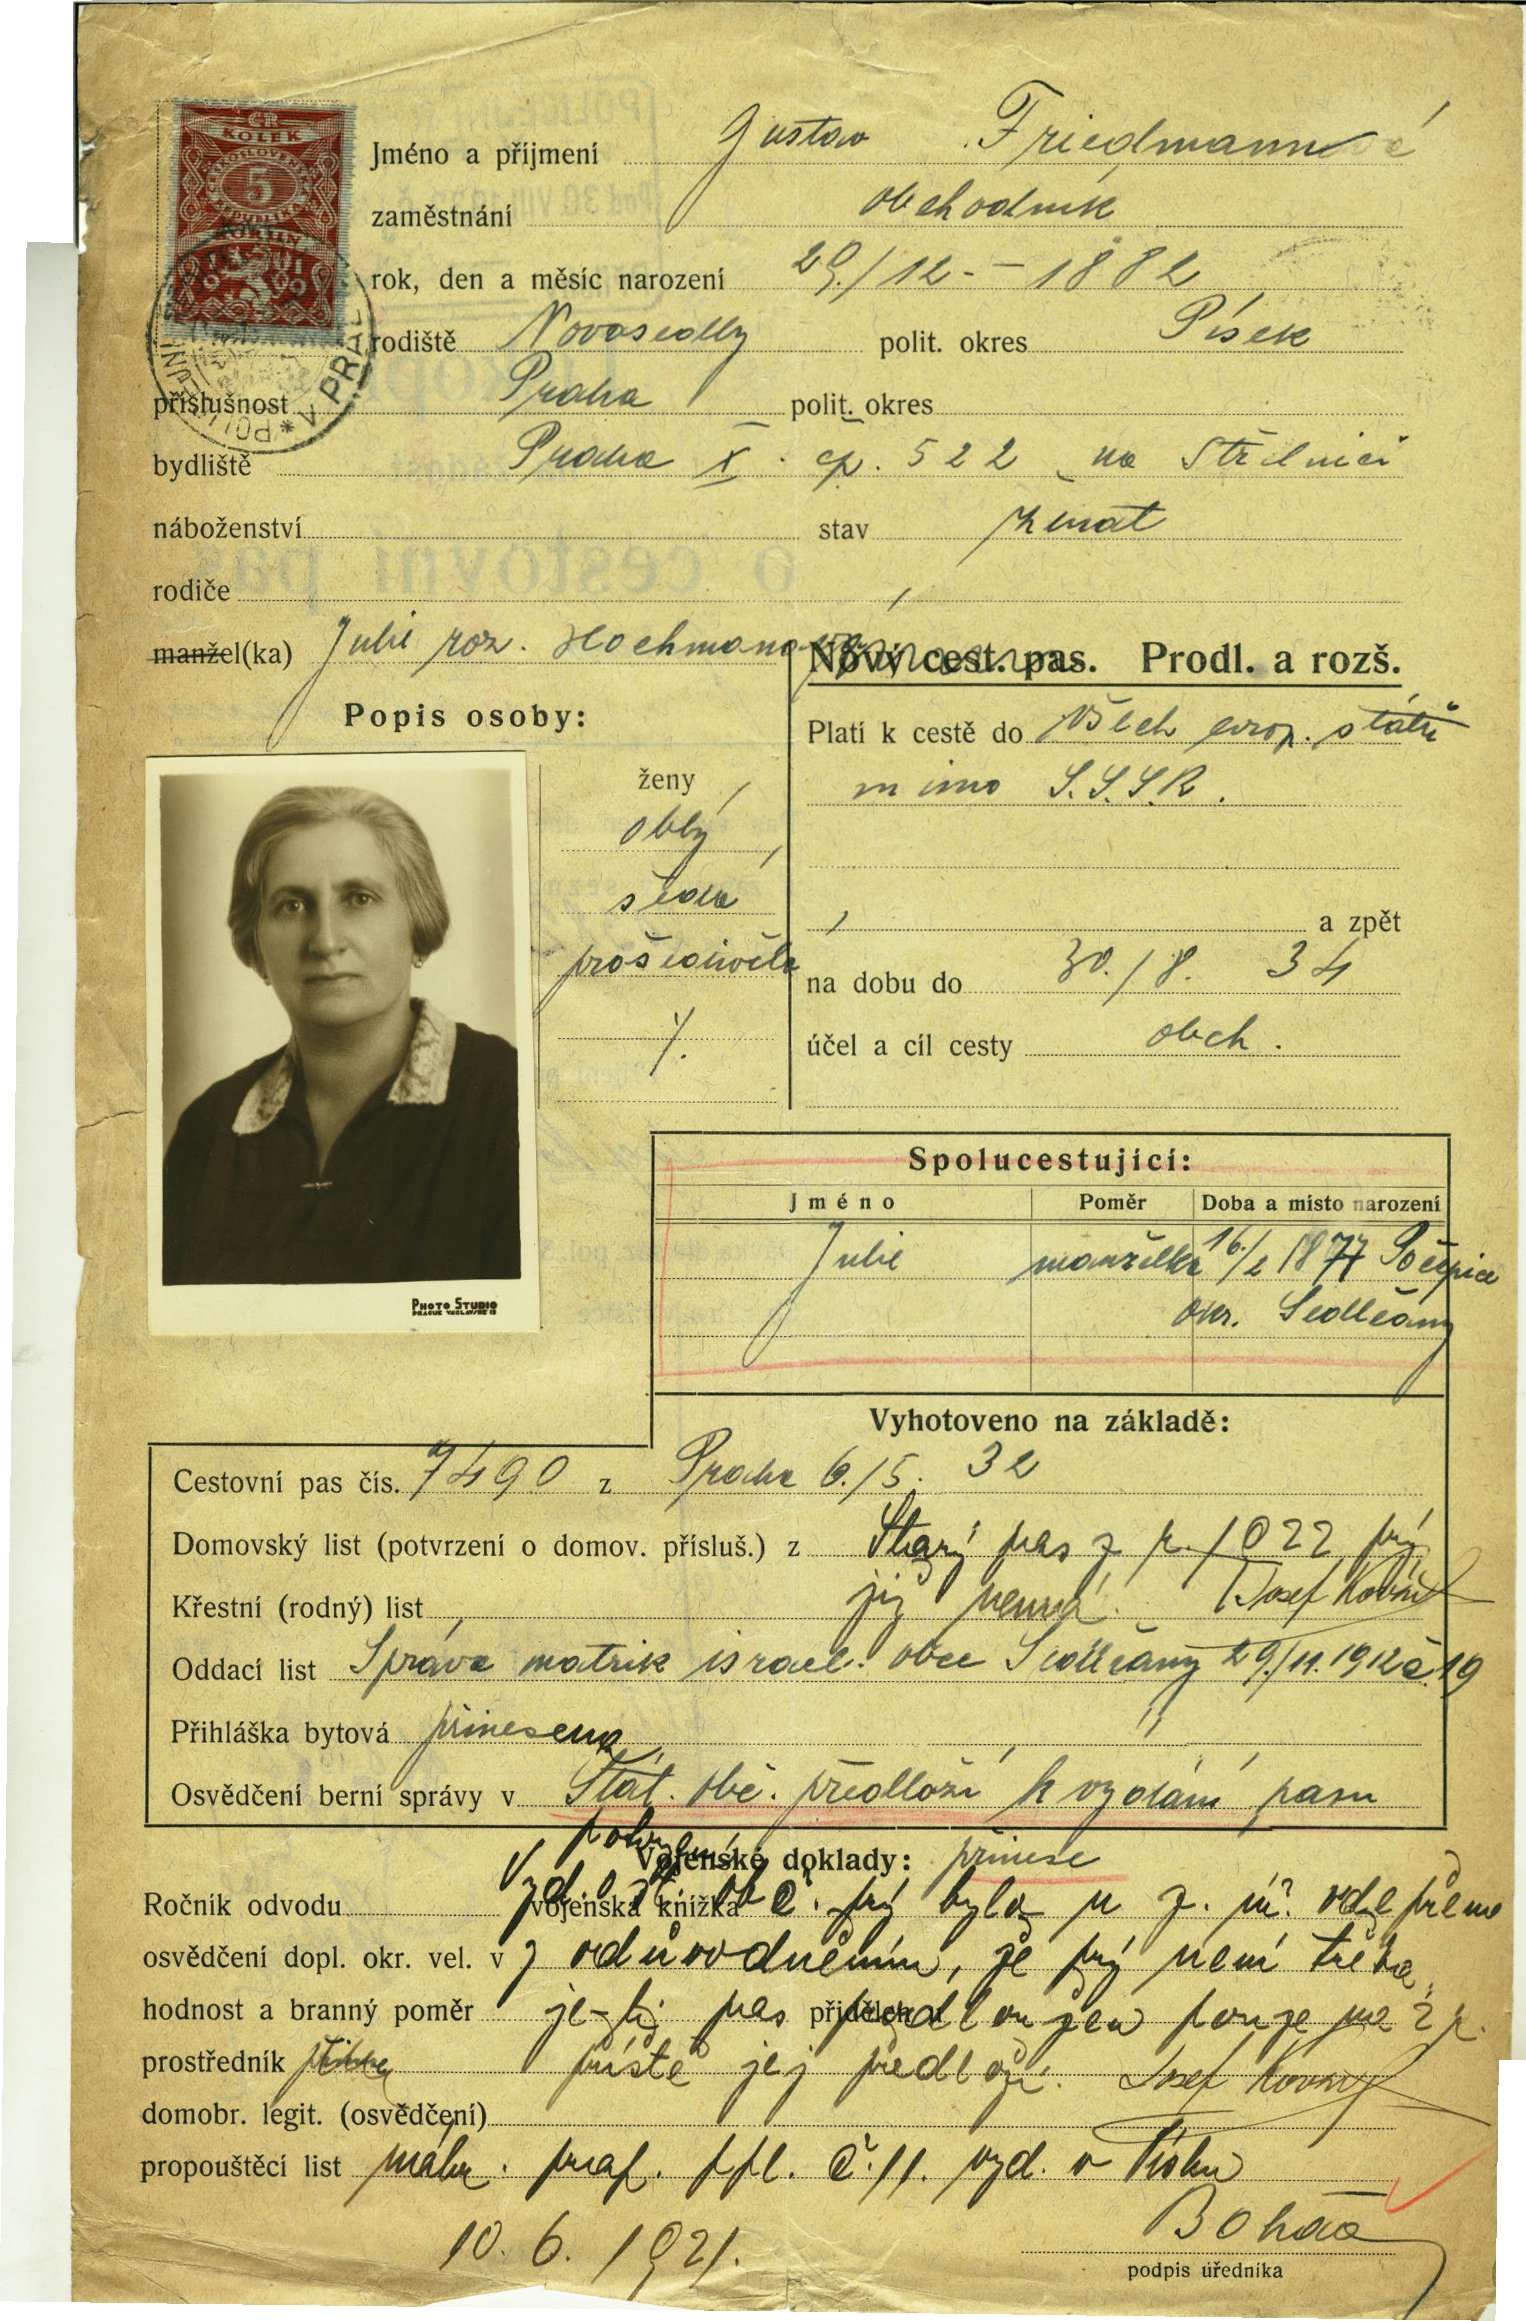 ČR
KOLEK
ČESKOSLOVENSKÁ
5
REPUBLIKA
V PRAZE
Jméno a příjmení Gustav Friedmann
zaměstnání obchodník
rok, den a měsíc narození 29./12. – 1882
rodiště Novosedly polit. okres Písek
příslušnost Praha polit. okres
bydliště Praha X. čp. 522 na Střelnici
náboženství stav ženat
rodiče
manžel(ka) Julie roz. Hochmanova
Nový cest. pas. Prodl. a rozš.
Popis osoby:
Platí k cestě do všech evrop. států
mimo S.S.S.R.
a zpět
na dobu do 30./8. 34
účel a cíl cesty obch.
ženy
oblý
šedá
prošedivělé
./.
PHOTO STUDIO
Spolucestující:
Jméno Poměr Doba a místo narození
Julie manželka 16./2 1877 Počepice
okr. Sedlčany
Vyhotoveno na základě:
Cestovní pas čís. 7490 z Praha 6./5. 32
Domovský list (potvrzení o domov. přísluš.) z Starý pas z r. 1922 prý
Křestní (rodný) list již nemá. Josef Kovář
Oddací list Správa matrik israel. obce Sedlčany 29./11. 1912 č. 19
Přihláška bytová přinesena
Osvědčení berní správy v Stát. obč. předloží k vydání pasu
Vojenské doklady: přinese
Ročník odvodu vojenská knížka prý bylo u z. úř.
osvědčení dopl. okr. vel. v z odůvodněním, že prý není třeba,
hodnost a branný poměr přidělen je-li pas prodloužen pouze na 2 r.
prostředník příště jej předloží. Josef Kovář
domobr. legit. (osvědčení)
propouštěcí list náhr. prap. ppl. č. 11. vyd. v Písku
10. 6. 1921.
podpis úředníka